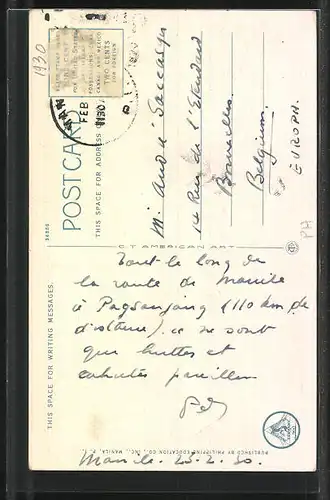 1930
PLACE STAMP HERE
ONE CENT
FOR UNITED STATES
TWO CENTS
FOR FOREIGN
FEB
1930
POSTCARD
THIS SPACE FOR ADDRESS
34806
M. André Saccasyn
14 Rue de l'Etendard
Bruxelles.
Belgium.
EUROPA.
PH
C.T. AMERICAN ART
THIS SPACE FOR WRITING MESSAGES.
Tout le long de
la route de Manile
à Pagsanjang (110 km de
distance) ce ne sont
que huttes et
cahutes pareilles
PUBLISHED BY PHILIPPINE EDUCATION CO., INC., MANILA, P. I.
Manile. 23.2.30.